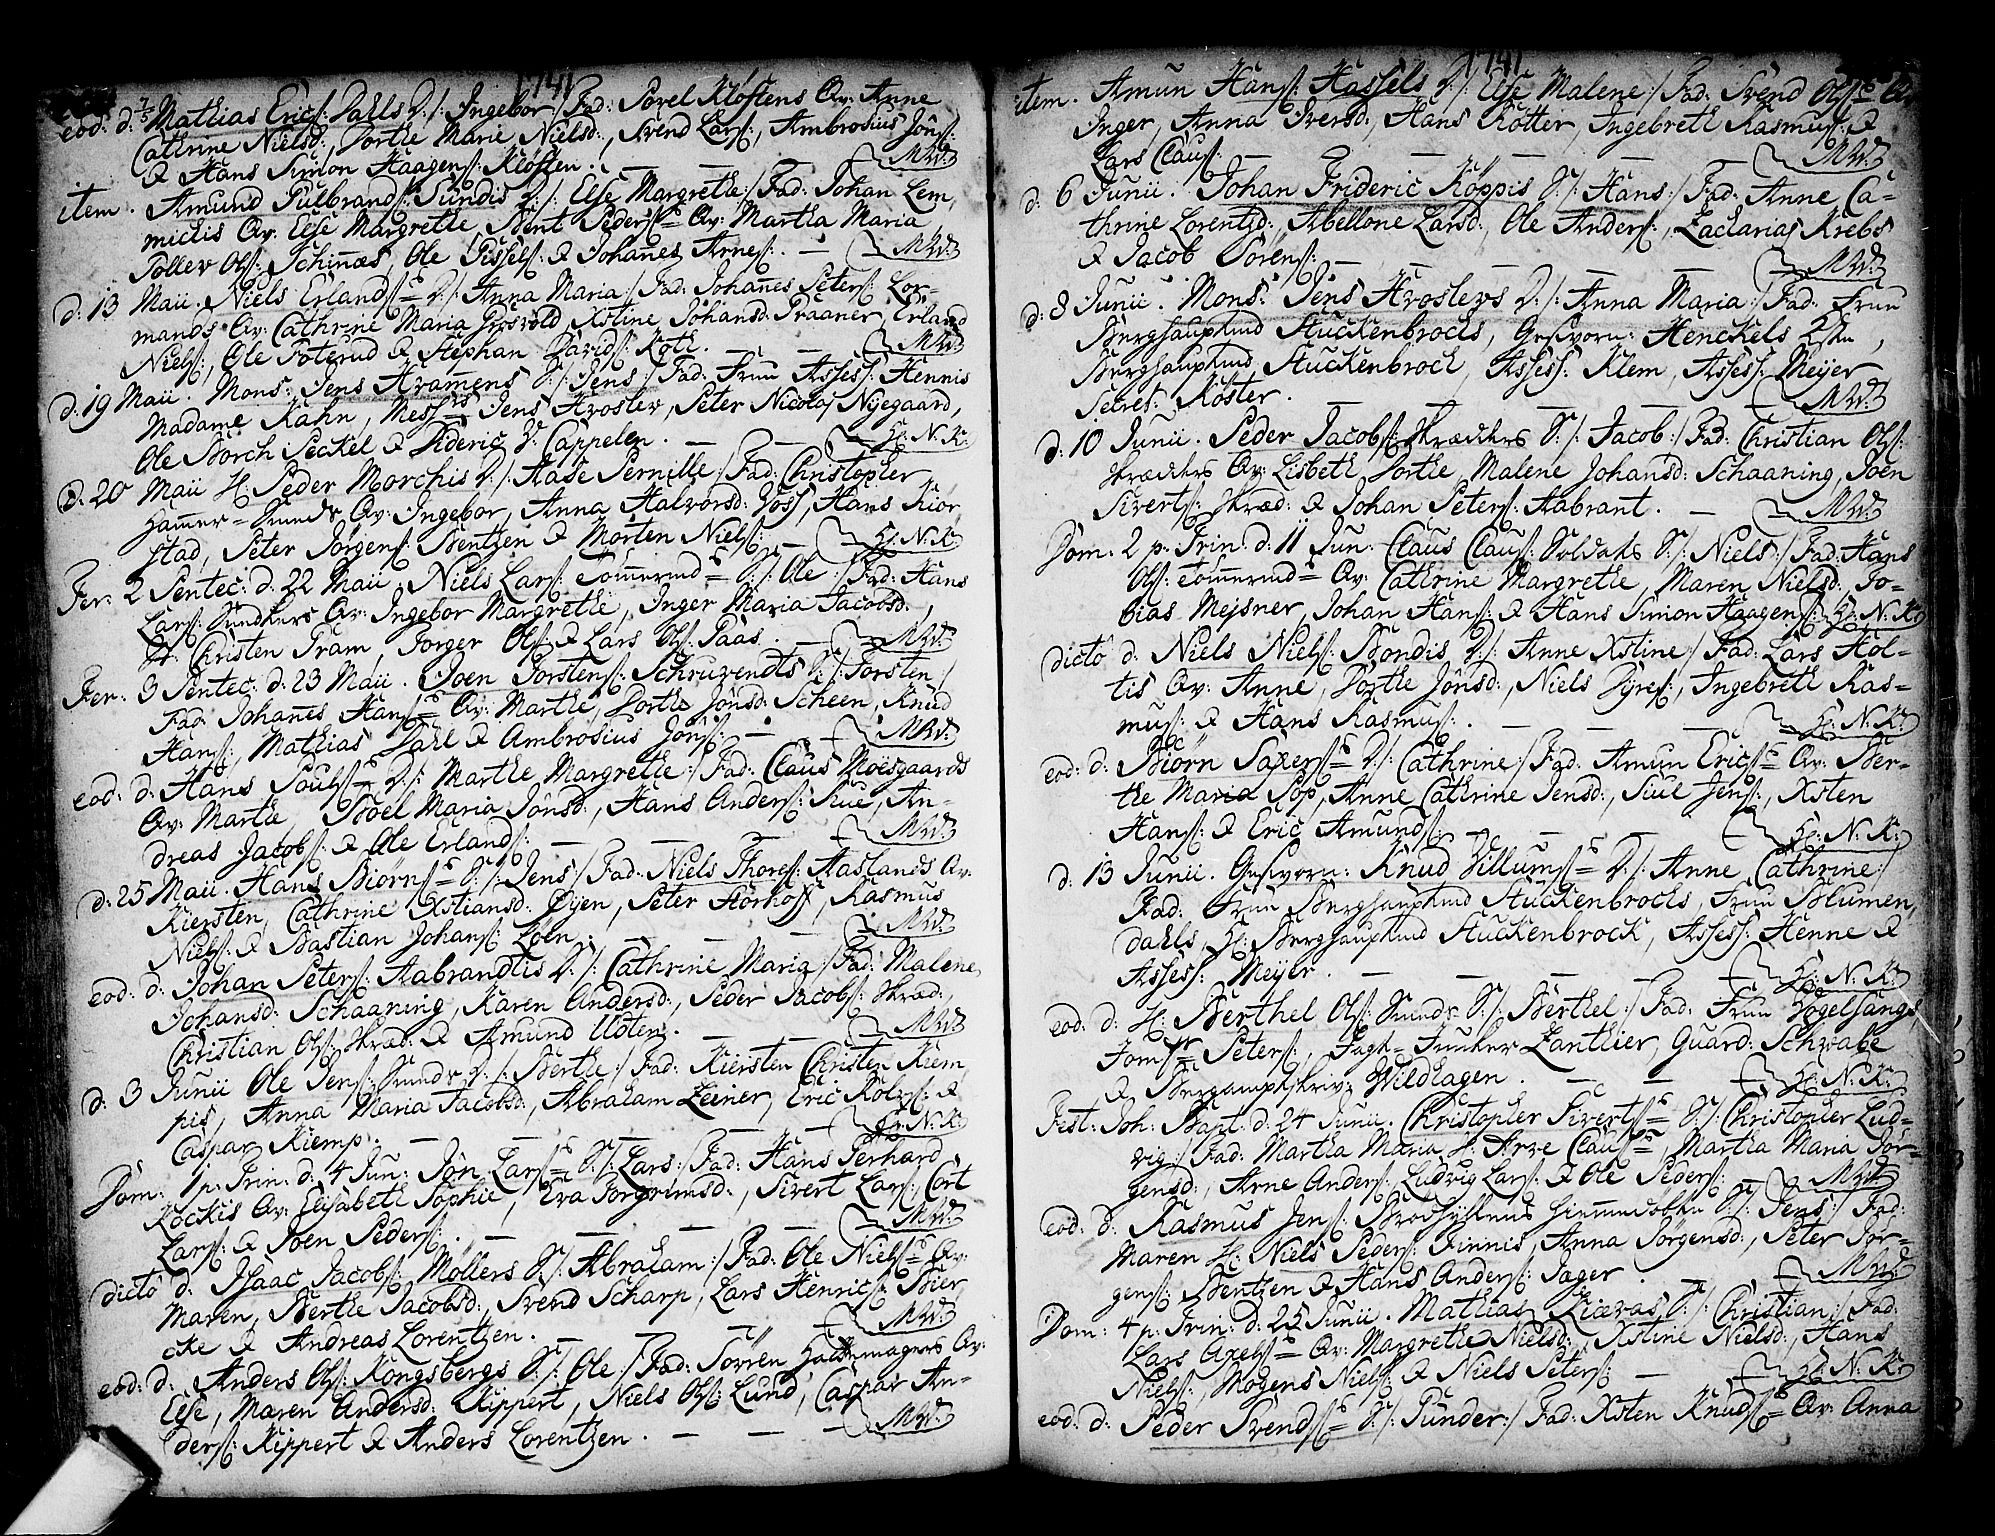 1741
eod: d: 7/5 Mathias Erics: Dahls D:/: Ingebor/: Fad: Sorel Klöftens Qv: Anne
Cathrine Nielsd:, Dorthe Marie Nielsd:, Svend Lars:, Ambrosius Jöns:
& Hans Simon Haagens: Klöften. — — — MRd:
item. Amund Gulbrands: Sundis D:/: Else Margrethe:/ Fad: Johan Lem,
michs Qv: Else Margrethe, Bent Peders: Qv: Martha Maria
Poller Ols: Schinnæs, Ole Sissels: & Johanes Arnes: — MRd:
d: 13 Maii. Niels Erlands: D:/: Anna Maria:/ Fad: Johannes Peters: Lor-
mands Qv: Cathrine Maria Grosvold, Xstine Johansd: Praaner, Erland
Niels:, Ole Foterud & Stephan Davids: Koth. — — MRd:
d: 19 Maii. Mons: Jens Hramens S:/: Jens:/ Fad: Fruu Asses: Hennis
Madame Kahn, Mess: Jens Hroslev, Peter Nicolaj Nyegaard,
Ole Borch Seckel & Dideric v: Cappelen. — — H: N: K:
d: 20 Maii H: Peder Morchis D:/: Aase Pernille:/ Fad: Christopher
Hammer-Smeds Qv: Ingebor, Anna Halvorsd: Voss, Hans Kior,
stad, Peter Jörgens: Bentzen & Morten Niels: — H: N: K:
Fer: 2 Pentec: d: 22 Maii. Niels Lars: Tömmermd S:/: Ole:/ Fad: Hans
Lars: Snedkers Qv: Ingebor Margrethe, Inger Maria Jacobsd:,
Hr: Christen Tram, Torger Ols: & Lars Ols: Paas. — MRd:
Fer: 3 Pentec: d: 23 Maii. Joen Torstens: Schruvendts S:/: Torsten:/
Fad: Johannes Hans: Qv: Marthe, Dorthe Jönsd: Scheen, Knud
Hans:, Mathias Dahl & Ambrosius Jöns: — — MRd:
eod: d: Hans Pouls: D:/: Marthe Margrethe:/ Fad: Claus Moesgaards
Qv: Marthe, Boel Maria Jönsd:, Hans Anders: Kue, An-
dreas Jacobs: & Ole Erlands: — — — MRd:
d: 25 Maii. Hans Biörns: S:/: Jens:/ Fad: Niels Thores: Aaslands Qv:
Kiersten, Cathrine Xstiansd: Öyen, Peter Störhoff, Rasmus
Niels: & Bastian Johans: Loen. — — — MRd:
eod: d: Johan Peters: Aabrandtis D:/: Cathrine Maria:/ Fad: Malene
Johansd: Schaaning, Karen Andersd:, Peder Jacobs: Skræd:,
Christian Ols: Skræd: & Amund Udten. — — MRd:
d: 3 Junii Ole Jens: Smeds D:/: Berthe:/ Fad: Kiersten Christen Kiem,
pis, Anna Maria Jacobsd:, Abraham Zeiner, Eric Kolz: &
Caspar Kiemp. — — — — H: N: K:
Dom: 1 p: Trin: d: 4 Jun: Jön Lars: S:/: Lars:/ Fad: Hans Gerhard
Kockis Qv: Elisabeth Sophie, Eva Torgrimsd:, Sivert Lars:, Cort
Lars: & Joen Peders: — — — MRd:
dicto d: Isaac Jacobs: Möllers S:/: Abraham:/ Fad: Ole Niels: Qv:
Maren, Berthe Jacobsd:, Svend Scharp, Lars Henric Bier
cke & Andreas Lorentzen. — — — MRd:
eod: d: Anders Ols: Kongsbergs S:/: Ole:/ Fad: Sören Hattemagers Qv:
Else, Maren Andersd: Kippert, Niels Ols: Lund, Caspar An-
ders: Kippert & Anders Lorentzen. — — — MRd:
1741
item. Amun Hans: Hassels D:/: Else Malene:/ Fad: Svend Ols: Qv:
Inger, Anna Iversd:, Hans Kotter, Ingebreth Rasmus: &
Lars Claus: — — — — MRd:
d: 6 Junii. Johan Frideric Köppis S:/: Hans:/ Fad: Anne Ca-
thrine Lorentzd:, Abellone Larsd:, Ole Anders:, Zacharias Krebs
& Jacob Sörens: — — — — MRd:
d: 8 Junii. Mons: Jens Hroslevs D:/: Anna Maria:/ Fad: Fruu
Berghauptmd Stuckenbrocks, Gesvorn: Henckels Dtr,
Berghauptmd Stuckenbrock, Asses: Klem, Asses: Meyer
Secret: Köster. — — — — MRd:
d: 10 Junii. Peder Jacobs: Skrædders S:/: Jacob:/ Fad: Christian Ols:
Skrædders Qv: Lisbeth Dorthe, Malene Johansd: Schaaning, Joen
Siverts: Skræd: & Johan Peters: Aabrant. — MRd:
Dom: 2 p: Trin: d: 11 Jun: Claus Claus: Soldats S:/: Niels:/ Fad: Hans
Ols: Tömmermd Qv: Cathrine Margrethe, Maren Nielsd:, To-
bias Mejsner, Johan Hans: & Hans Simon Haagens: H: N: K:
dicto d: Niels Niels: Bondis D:/: Anne Xstine:/ Fad: Lars Hol-
tis Qv: Anne, Dorthe Jönsd:, Niels Dyres:, Ingebreth Ras-
mus: & Hans Rasmus: — — — H: N: K:
eod: d: Biörn Saxers: D:/: Cathrine:/ Fad: Amun Erics: Qv: Ber-
the Maria Sop, Anne Cathrine Jensd:, Juul Jens:, Xsten
Hans: & Eric Amunds: — — — H: N: K:
d: 13 Junii. Gesvorn: Knud Villums: D:/: Anne Cathrine:/
Fad: Fruu Berghauptmd Stuckenbrocks, Fruu Blumen,
dahls, H: Berghauptmd Stuckenbrock, Asses: Henne &
Asses: Meyer. — — — — H: N: K:
eod: d: H: Berthel Ols: Smeds S:/: Berthel:/ Fad: Fruu Vogelsangs,
Jomfr Peters:, Jagt-Juncker Lanthier, Guard: Schwabe
& Bergamptskriv: Wildhagen. — — — H: N: K:
Fest: Joh: Bapt: d: 24 Junii. Christopher Siverts: S:/: Christopher Lud-
vig:/ Fad: Martha Maria H: Arve Claus:, Martha Maria Jör-
gensd:, Arne Anders:, Ludvig Lars: & Ole Peders: — MRd:
eod: d: Rasmus Jens: S:/: Jens:/ Fad:
Maren H: Niels Peders: Finnis, Anna Jörgensd:, Peter Jör-
gens: Bentzen & Hans Anders: Jager. — — MRd:
Dom: 4 p: Trin: d: 25 Junii. Mathias Kiæras S:/: Christian:/ Fad:
Lars Axels: Qv: Margrethe Nielsd:, Xstine Nielsd:, Hans
Niels:, Mogens Niels: & Niels Peters: — H: N: K:
eod: d: Peder Svends: S:/: Gunder:/ Fad: Xsten Knuds: Qv: Anna